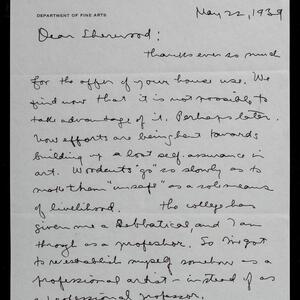 DEPARTMENT OF FINE ARTS
May 22, 1939
Dear Sherwood:
Thanks ever so much
for the offer of your house use. We
find now that it is not possible to
take advantage of it. Perhaps later.
Now efforts are being bent towards
building up a lost self-assurance in
art. Woodcuts "go" so slowly as to
make them "unsafe" as a sole means
of livelihood. The college has
given me a Sabbatical, and I am
through as a professor. So I've got
to reestablish myself somehow as a
professional artist - instead of as
a professional professor.